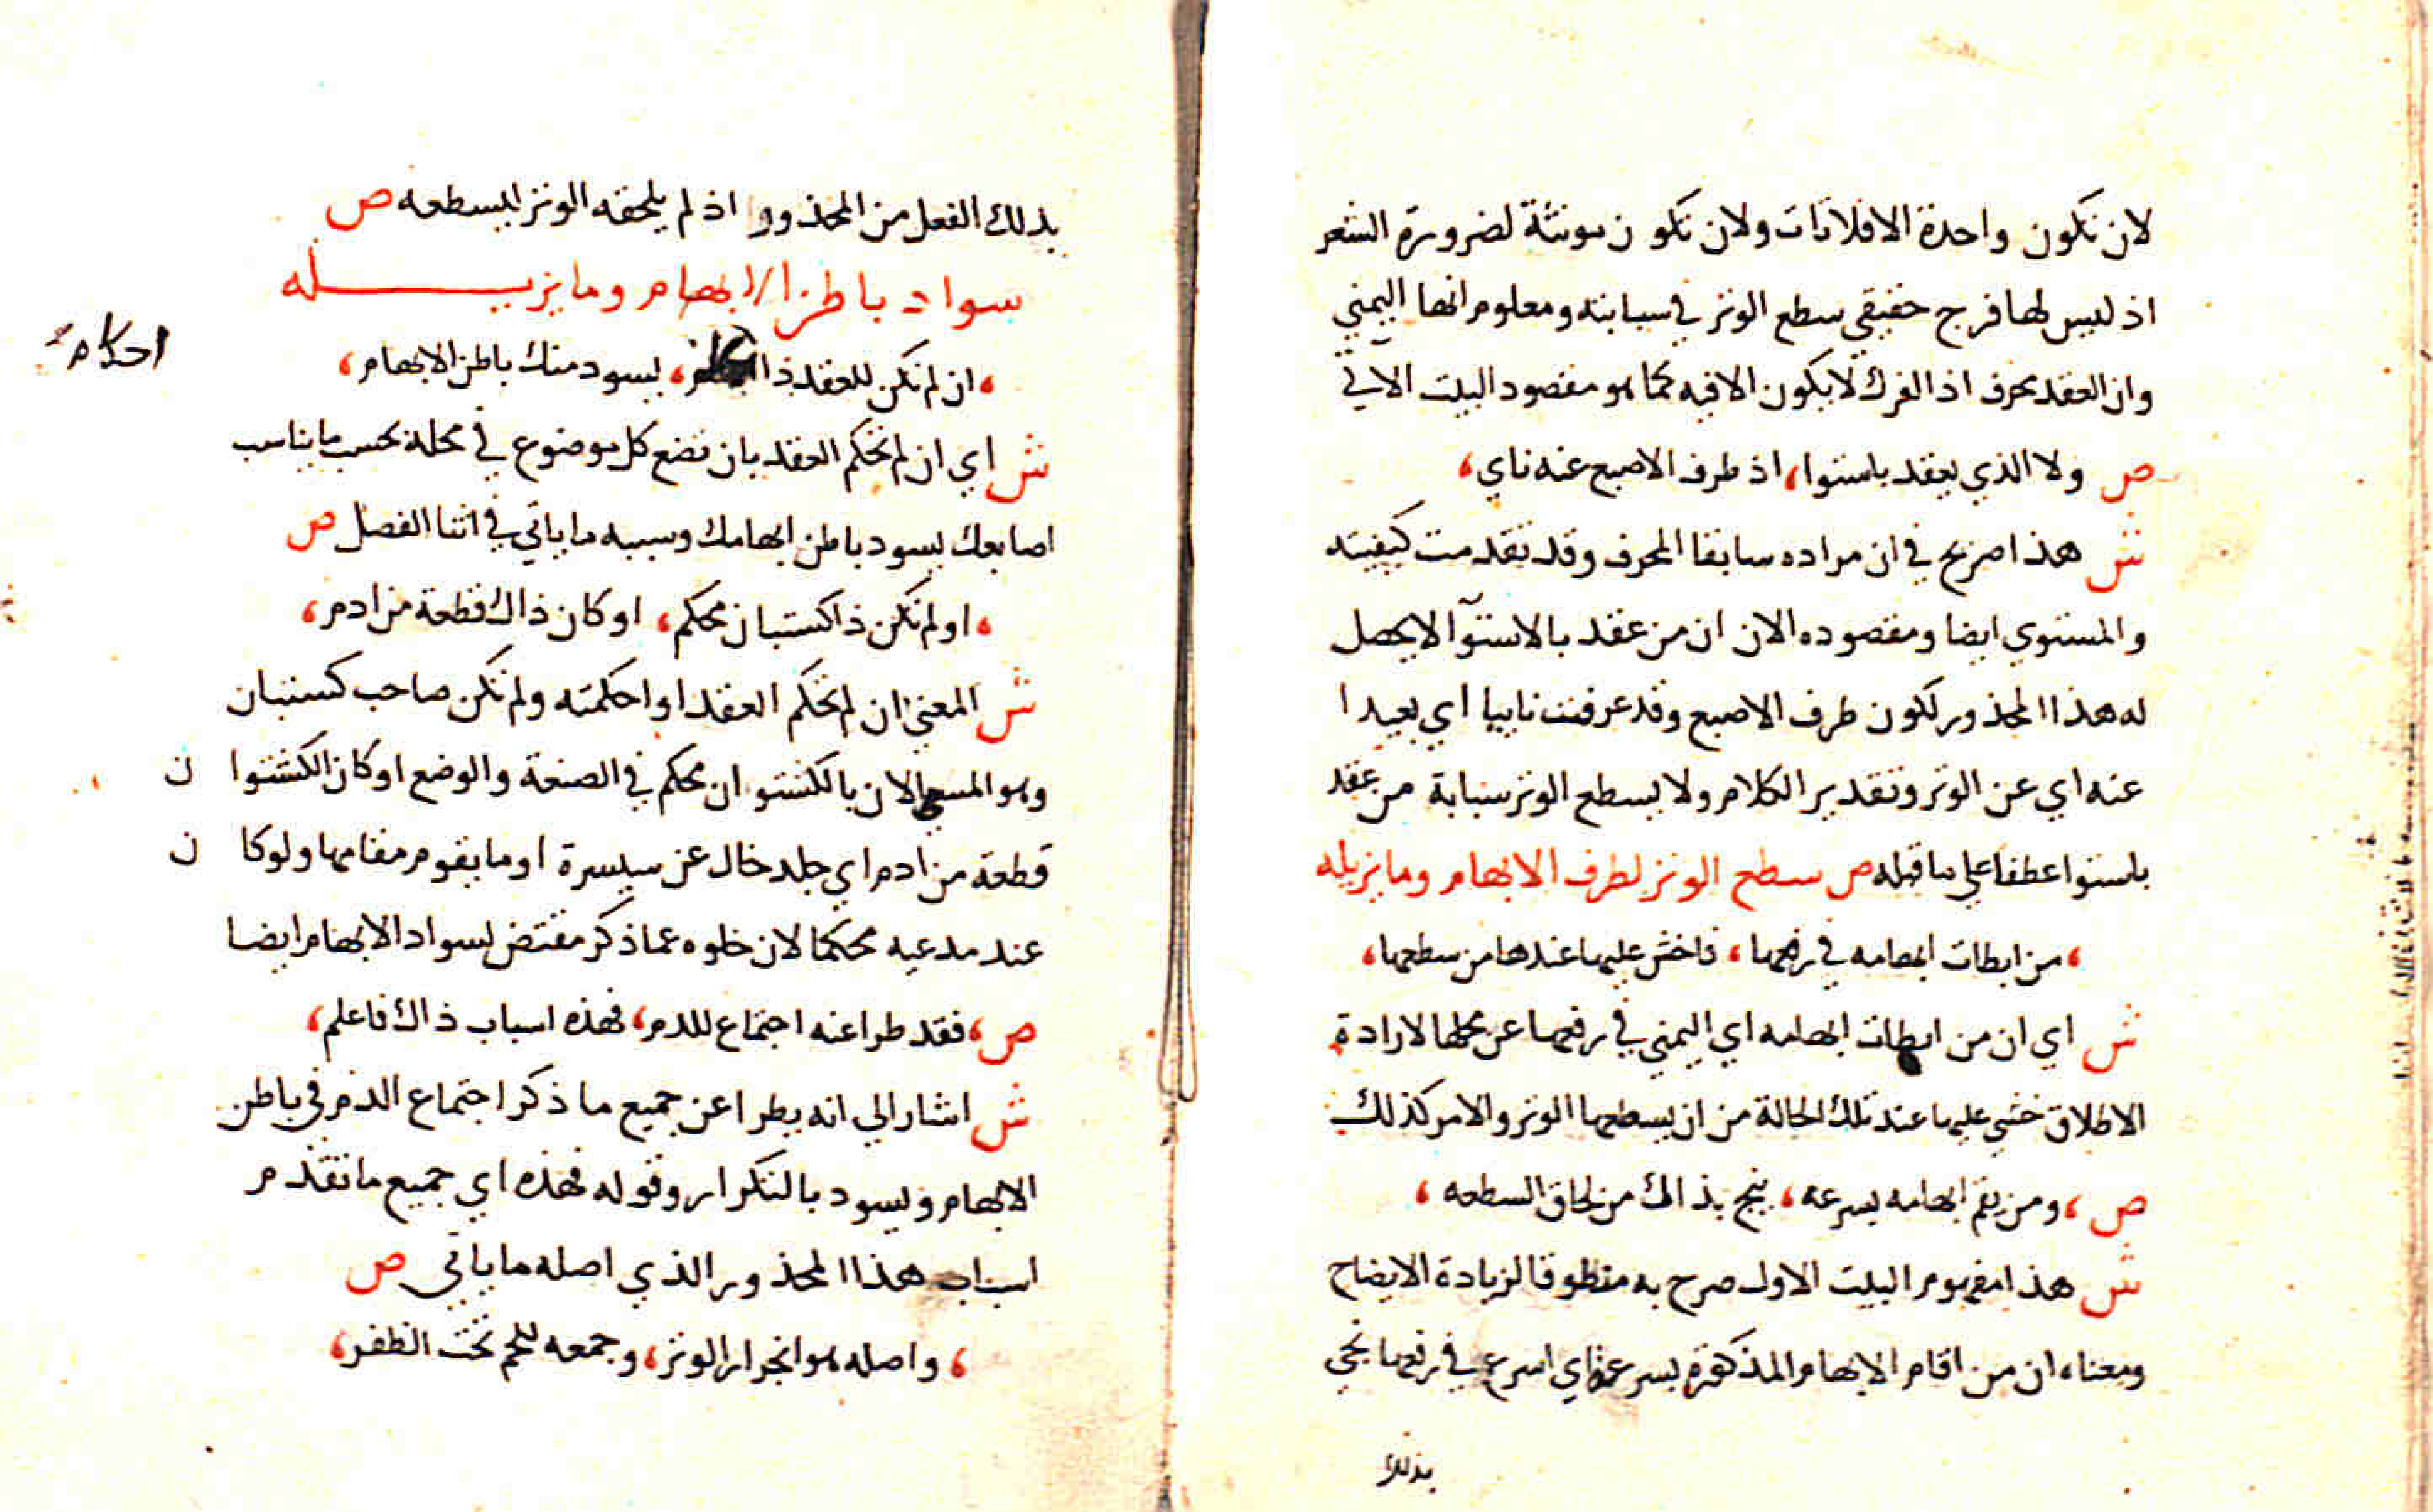 لان تكون واحدة الافلاتات ولان تكون مونثة لضرورة الشعر
اذ ليس لها فرج حقيقي سطع الوتر في سبابته ومعلوم انها اليمني
وان العقد محرف اذ الفرك لا يكون الا فيه كما هو مقصود البيت الاتي
ص ولا الذي يعقد باستوا، اذ طرف الاصبع عنه ناي،
ش هذا صريح في ان مراده سابقا المحرف وقد تقدمت كيفيته
والمستوي ايضا ومقصوده الان ان من عقد بالاستوآ لا يحصل
له هذا المحذور لكون طرف الاصبع وقد عرفت ناييا اي بعيدا
عنه اي عن الوتر وتقدير الكلام ولا يسطع الوتر سبابة من عقد
باستوا عطفا علي ما قبله ص سطع الوتر لطرف الابهام وما يزيله
، من ابطات ابهامه في رفعها، فاخش عليها عندها من سطعها،
ش اي ان من ابطات ابهامه اي اليمني في رفعها عن محلها لارادة
الاطلاق خشي عليها عند تلك الحالة من ان يسطعها الوتر والامر كذلك
ص، ومن يقم ابهامه بسرعه، ينج بذاك من لحاق السطعه،
ش هذا مفهوم البيت الاول صرح به منطوقا لزيادة الايضاح
ومعناه ان من اقام الابهام المذكورة بسرعة اي اسرع في رفعها نجي
بذلك
بذلك الفعل من المحذور اذ لم يلحقه الوتر ليسطعه ص
سواد باطن الابهام وما يزيله
، ان لم تكن للعقد ذا احكام، يسود منك باطن الابهام،
احكام
ش اي ان لم تحكم العقد بان تضع كل موضوع في محله بحسب ما يناسب
اصابعك يسود باطن ابهامك وسببه ما ياتي في اثنا الفصل ص
، او لم تكن ذا كستبان محكم، او كان ذاك قطعة من ادم،
ش المعني ان لم تحكم العقد او احكمته ولم تكن صاحب كستبان
وهو المسمي الان بالكشتوان محكم في الصنعة والوضع او كان الكشتوان
قطعة من ادم اي جلد خال عن سيسرة او ما يقوم مقامها ولو كان
عند مدعيه محكما لان خلوه عما ذكر مقتض لسواد الابهام ايضا
ص، فقد طرا عنه اجتماع للدم، فهذه اسباب ذاك فاعلم،
ش اشار الي انه يطرا عن جميع ما ذكر اجتماع الدم في باطن
الابهام ويسود بالتكرار وقوله فهذه اي جميع ما تقدم
اسباب هذا المحذور الذي اصله ما ياتي ص
، واصله هو انجرار الوتر، وجمعه للحم تحت الظفر،